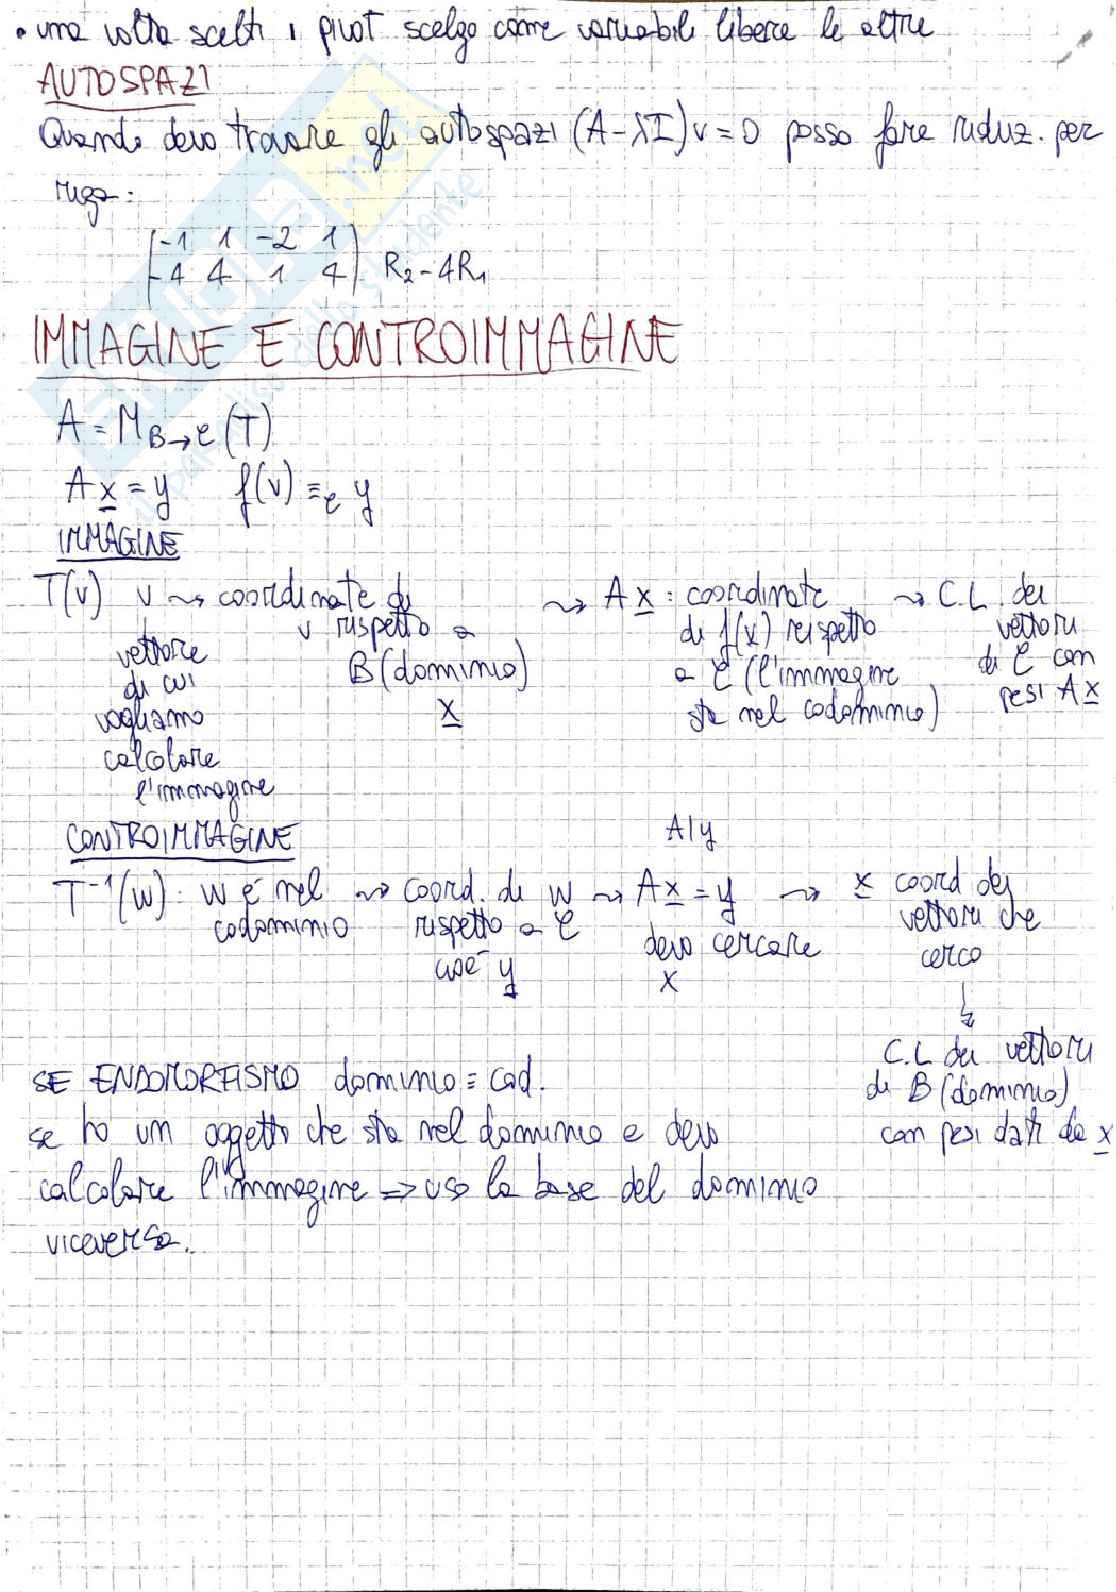 • una volta scelti i pivot scelgo come variabili libere le altre
AUTOSPAZI
Quando devo trovare gli autospazi (A-λI)v=0 posso fare riduz. per
riga:
-1 1 -2 1
-4 4 1 4 R₂-4R₁
IMMAGINE E CONTROIMMAGINE
A = M_B→e (T)
A x = y f(v) ≡_e y
IMMAGINE
T(v) v ⇝ coordinate di
v rispetto a
B (dominio)
x
vettore
di cui
vogliamo
calcolare
l'immagine
⇝ A x : coordinate
di f(x) rispetto
a C (l'immagine
sta nel codominio)
⇝ C.L. dei
vettori
di C con
pesi A x
CONTROIMMAGINE
T⁻¹(w): w è nel
codominio
⇝ coord. di w
rispetto a C
cioè y
A|y
⇝ A x = y
devo cercare
x
⇝ x coord dei
vettori che
cerco
↓
C.L dei vettori
di B (dominio)
con pesi dati da x
SE ENDOMORFISMO dominio = cod.
se ho un oggetto che sta nel dominio e devo
calcolare l'immagine => uso la base del dominio
viceversa.